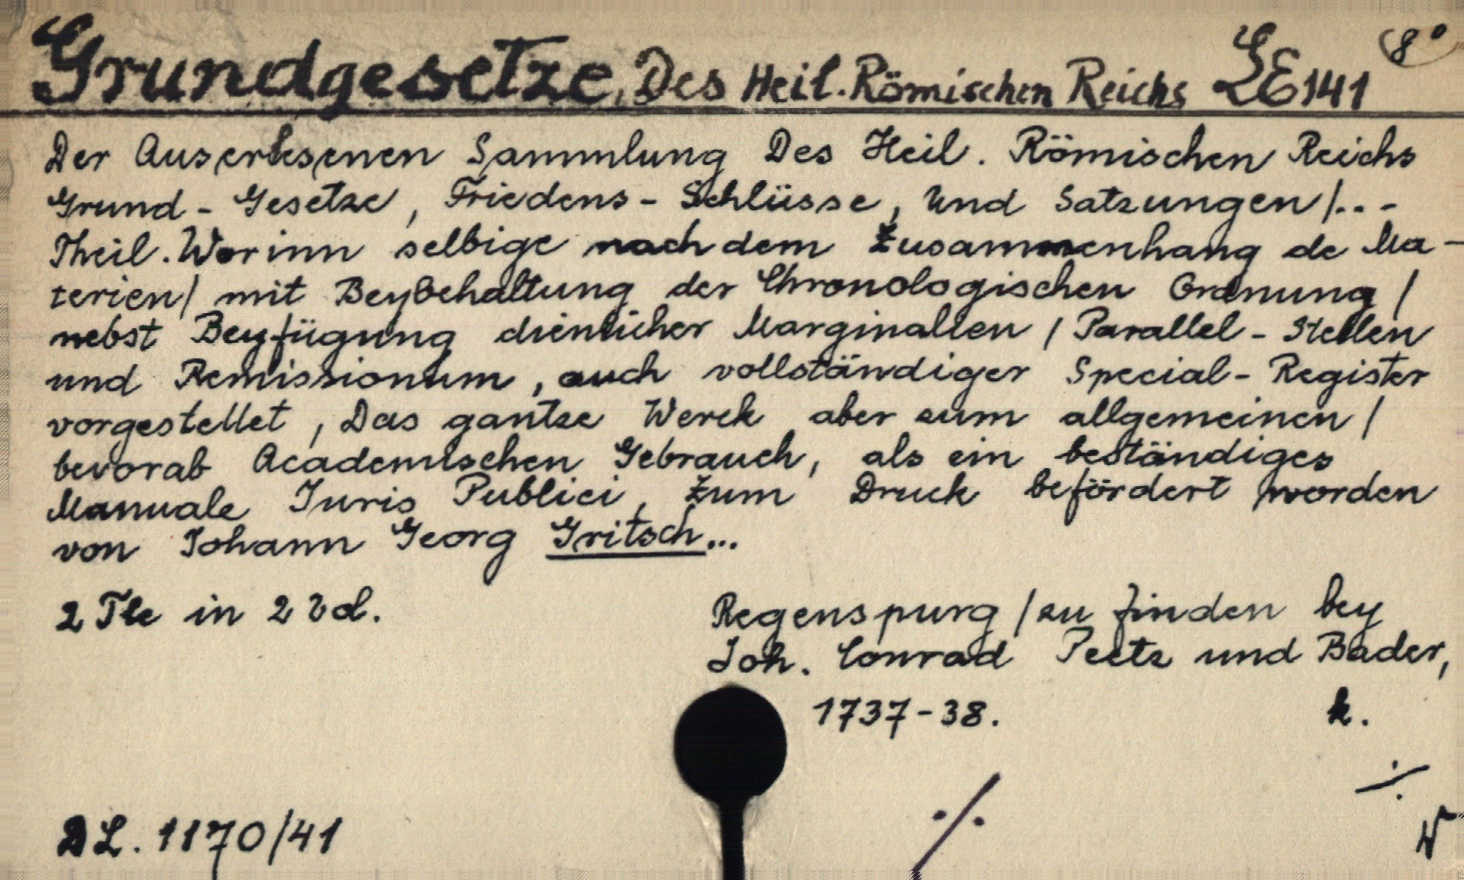 Grundgesetze, Des Heil. Römischen Reichs LE 141 8°
Der Auserlesenen Sammlung Des Heil. Römischen Reichs
Grund - Gesetze, Friedens - Schlüsse, und Satzungen/..-
Theil. Worinn selbige nach dem Zusammenhang de Ma-
terien/ mit Beybehaltung der Chronologischen Ordnung /
nebst Beyfügung dienlicher Marginalien / Parallel - Stellen
und Remissionum, auch vollständiger Special- Register
vorgestellet, Das gantze Werck aber zum allgemeinen /
bevorab Academischen Gebrauch, als ein beständiges
Manuale Juris Publici, zum Druck befördert worden
von Johann Georg Gritsch...
2 Tle in 2 Bd.
Regenspurg / zu finden bey
Joh. Conrad Peetz und Bader,
1737-38. k.
DL. 1170/41
W